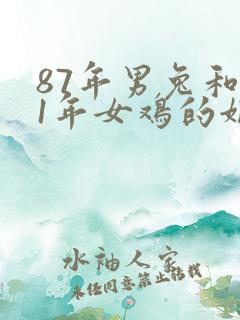 87年男兔和
1年女鸡的
水袖人家
未经同意禁止转载